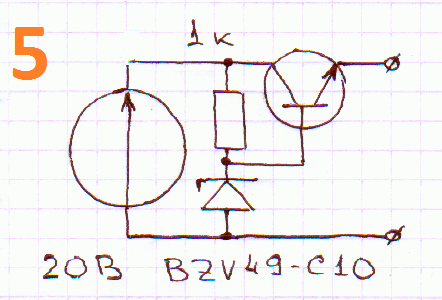 5
1к
20В BZV49-C10